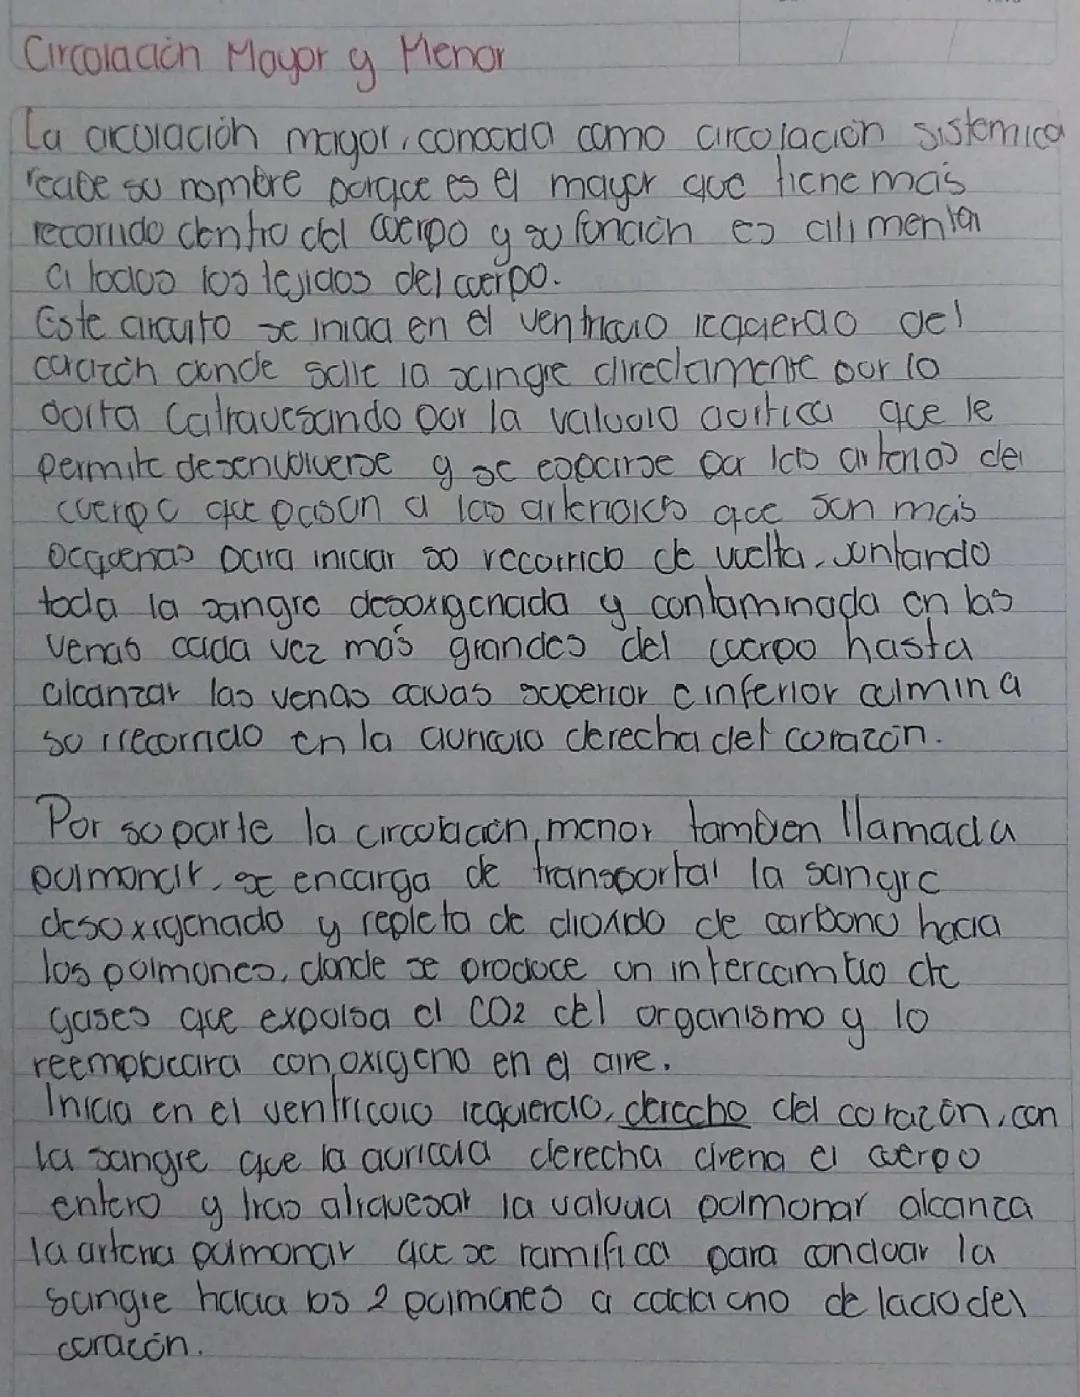 Circolación Mayor y Menor
La circulación mayor, conocida como circolación sistemica
recibe so nombre porque es el mayor que tiene más
recorrido dentro del cuerpo y su función es alimentar
a todos los tejidos del cuerpo.
Este circuito se inicia en el ventriculo izquierdo del
corazón donde sale la sangre directamente por la
aorta (atravesando por la valvula aortica que le
permite desenvolverse y se esparse por las arterias del
cuerpo que pasan a las arteriolas que son más
pequenas para iniciar so recorrido de vuelta, juntando
toda la sangre desoxigenada y contaminada en las
venas cada vez más grandes del cuerpo hasta
alcanzar las venas cavas superior e inferior culmina
so recorrido en la auricula derecha del corazón.
Por so parte la circolación menor tambien llamada
pulmonar, se encarga de transportar la sangre
desoxigenado y repleta de dioxido de carbono hacia
los polmones, donde se prodoce un intercambio de
gases que expolsa el CO2 del organismo y lo
reemplicara con oxigeno en el aire.
Inicia en el ventricolo izquierdo, derecho del corazón, con
la sangre que la auricola derecha drena el cuerpo
entero y tras atravesar la valvula polmonar alcanza
la arteria pulmonar que se ramifica para condoar la
sangre hacia los 2 polmones a cada uno de lado del
corazón.